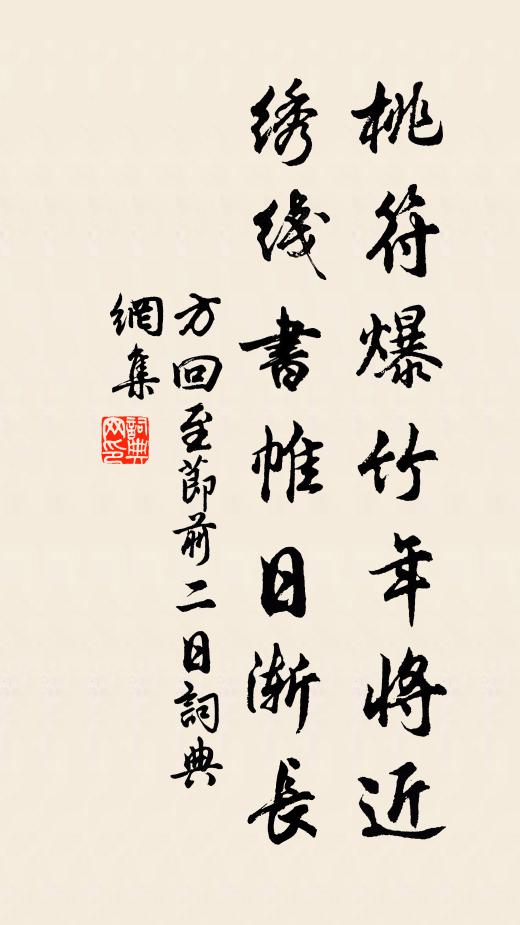 桃符爆竹年將近
绣线書帷日漸長
方回至節前二日詞典
網集
詞典
网印